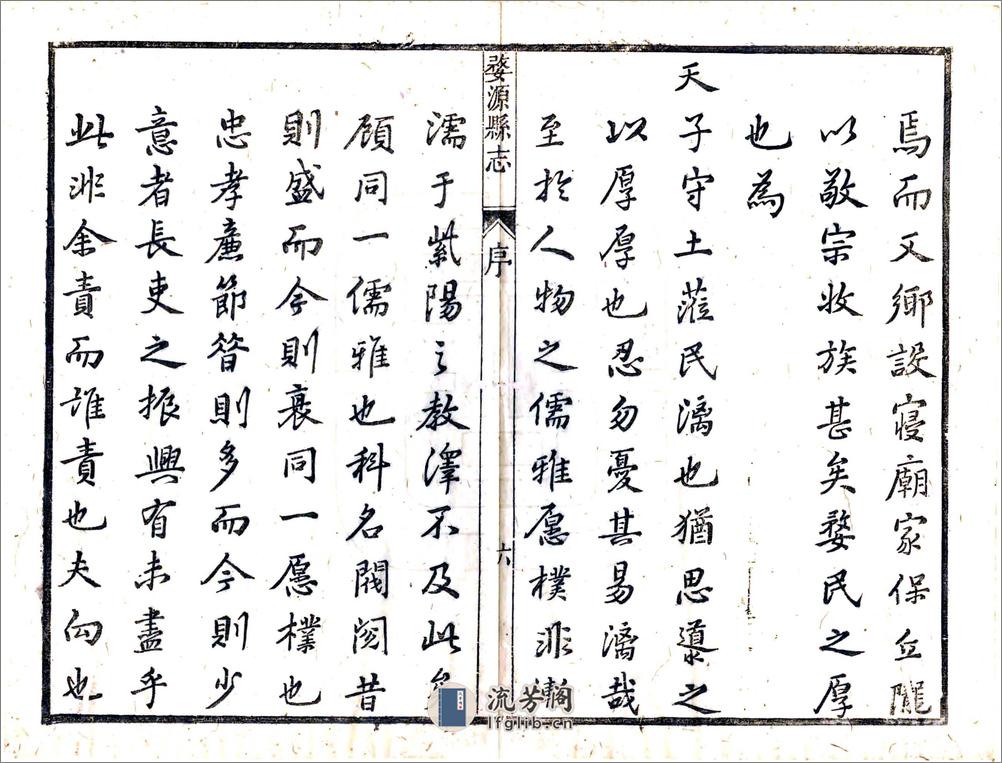 焉而又鄉設寢廟家保丘隴
以敬宗收族甚矣婺民之厚
也為
天子守土蒞民漓也猶思導之
以厚厚也忍勿憂其易漓哉
至於人物之儒雅愿樸非漸
婺源縣志
序
六
濡于紫陽之教澤不及此
顧同一儒雅也科名閥閱昔
則盛而今則衰同一愿樸也
忠孝廉節昔則多而今則少
意者長吏之振興有未盡乎
此非余責而誰責也夫向也
流芳閣
lfglib.cn